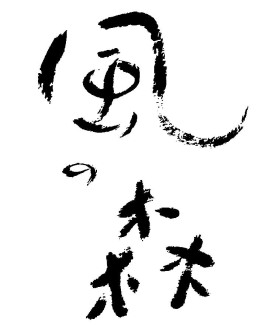 風の森